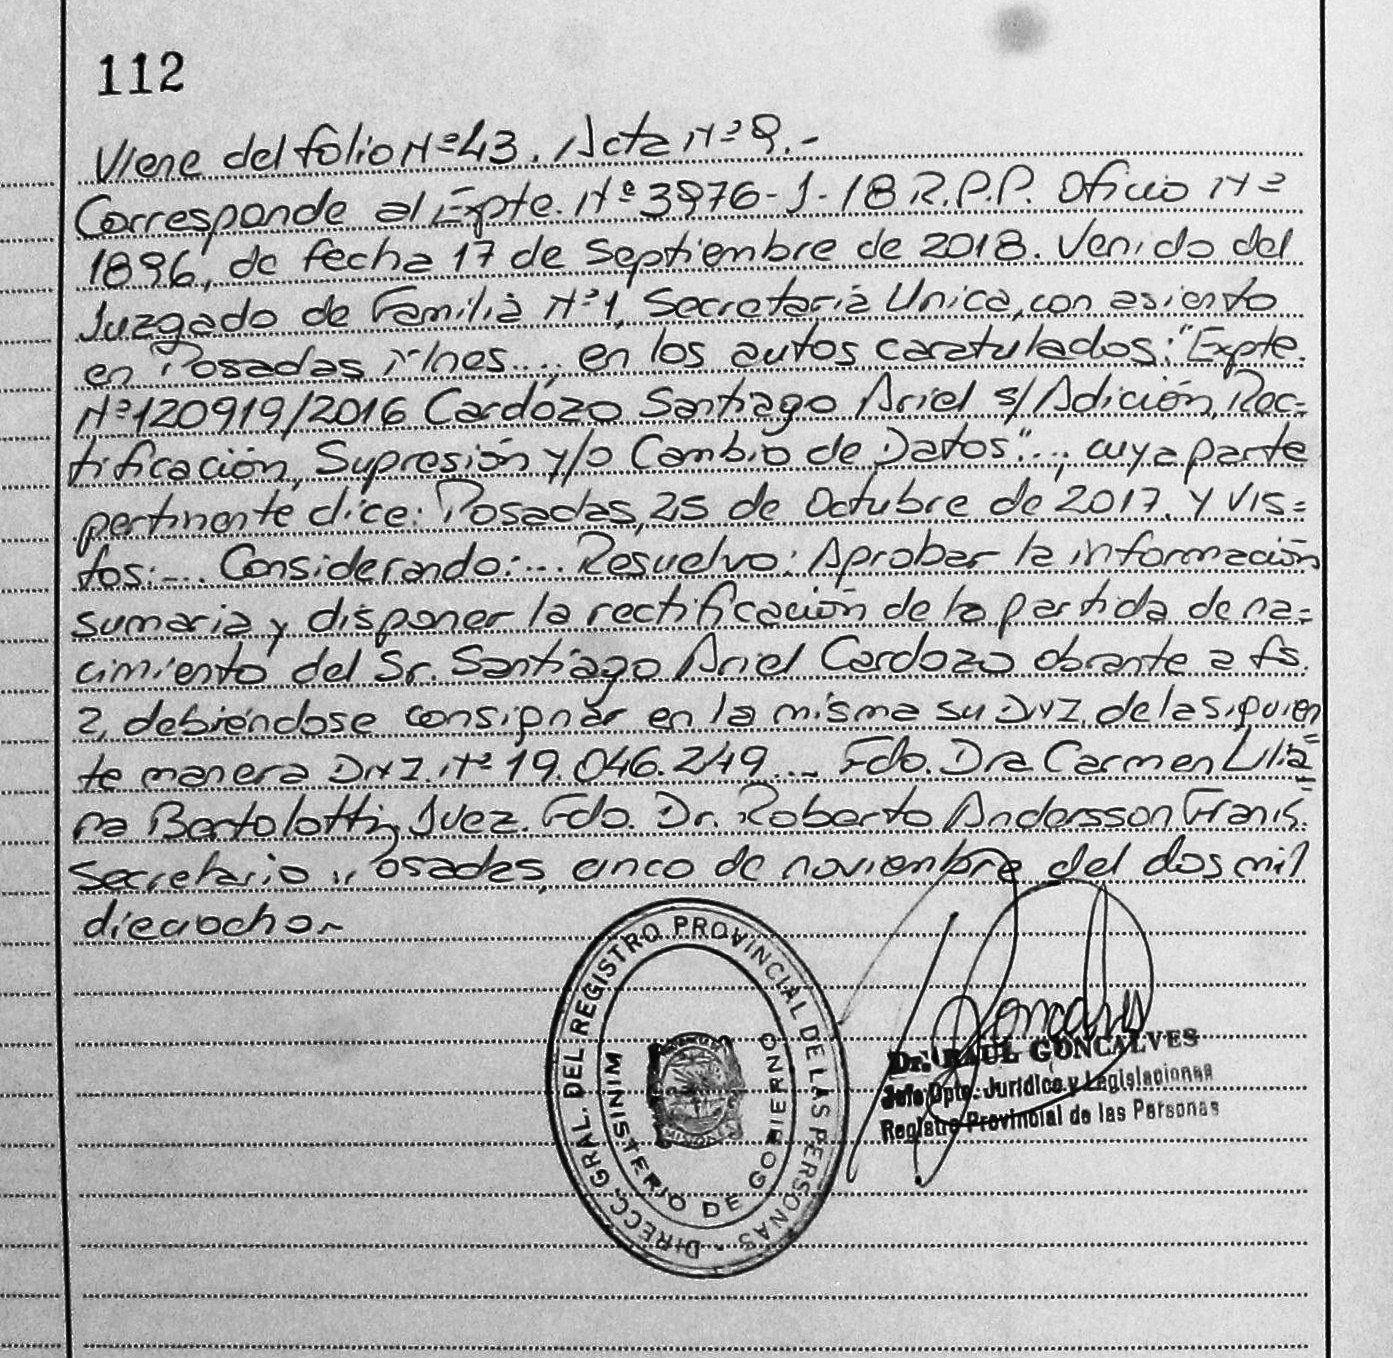 112
Viene del folio Nº 43. Acta Nº 9.-
Corresponde al Expte. Nº 3976-J-18 R.P.P. Oficio Nº
1896, de fecha 17 de Septiembre de 2018. Venido del
Juzgado de Familia Nº 1, Secretaria Unica, con asiento
en Posadas Mnes...; en los autos caratulados: "Expte.
Nº 120919/2016 Cardozo Santiago Ariel s/ Adición, Rec=
tificación, Supresión y/o Cambio de Datos"...; cuya parte
pertinente dice: Posadas, 25 de Octubre de 2017. Y Vis=
tos:... Considerando:... Resuelvo: Aprobar la información
sumaria y disponer la rectificación de la partida de na=
cimiento del Sr. Santiago Ariel Cardozo obrante a fs.
2, debiéndose consignar en la misma su DNI. de la siguien
te manera DNI. Nº 19.046.249... Fdo. Dra Carmen Lilia=
na Bertolotti, Juez. Fdo. Dr. Roberto Andersson Franis.
Secretario. Posadas, cinco de noviembre del dos mil
dieciocho-
DIRECC. GRAL. DEL REGISTRO PROVINCIAL DE LAS PERSONAS
MINISTERIO DE GOBIERNO
Dr. RAUL GONCALVES
Jefe Dpto. Jurídico y Legislaciones
Registro Provincial de las Personas